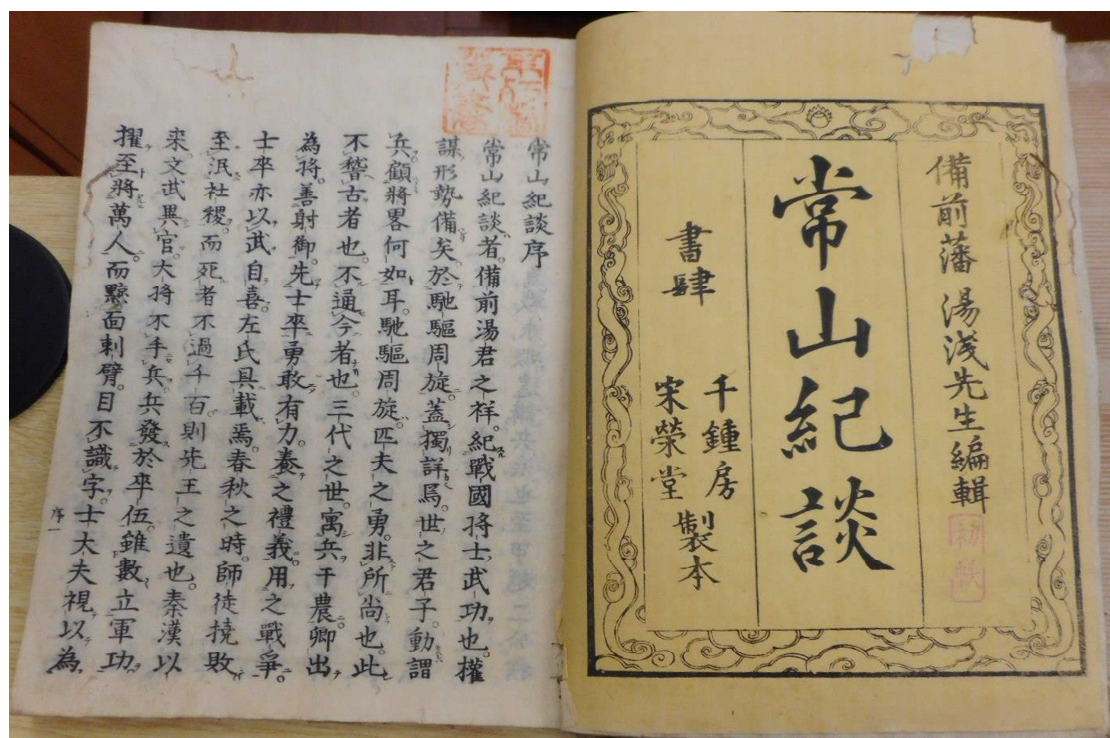 備前藩 湯浅先生編輯
初帙
常山紀談
書肆
千鍾房
宋榮堂
製本
常山紀談序
常山紀談者。備前湯君之祥。紀戰國将士武功也。權
謀形勢備矣。於馳驅周旋。蓋獨詳焉。世之君子。動謂
兵顧將畧何如耳。馳驅周旋。匹夫之勇。非所尚也。此
不稽古者也。不通今者也。三代之世。寓兵于農。卿出
為将。善射御。先士卒。勇敢有力。養之禮義。用之戰爭。
士卒亦以武自喜。左氏具載焉。春秋之時。師徒撓敗
至泯社稷。而死者不過千百。則先王之遺也。秦漢以
来。文武異官。大将不手兵。兵發於卒伍。雖數立軍功。
擢至將萬人。而黥面刺臂。目不識字。士大夫視以為
序一